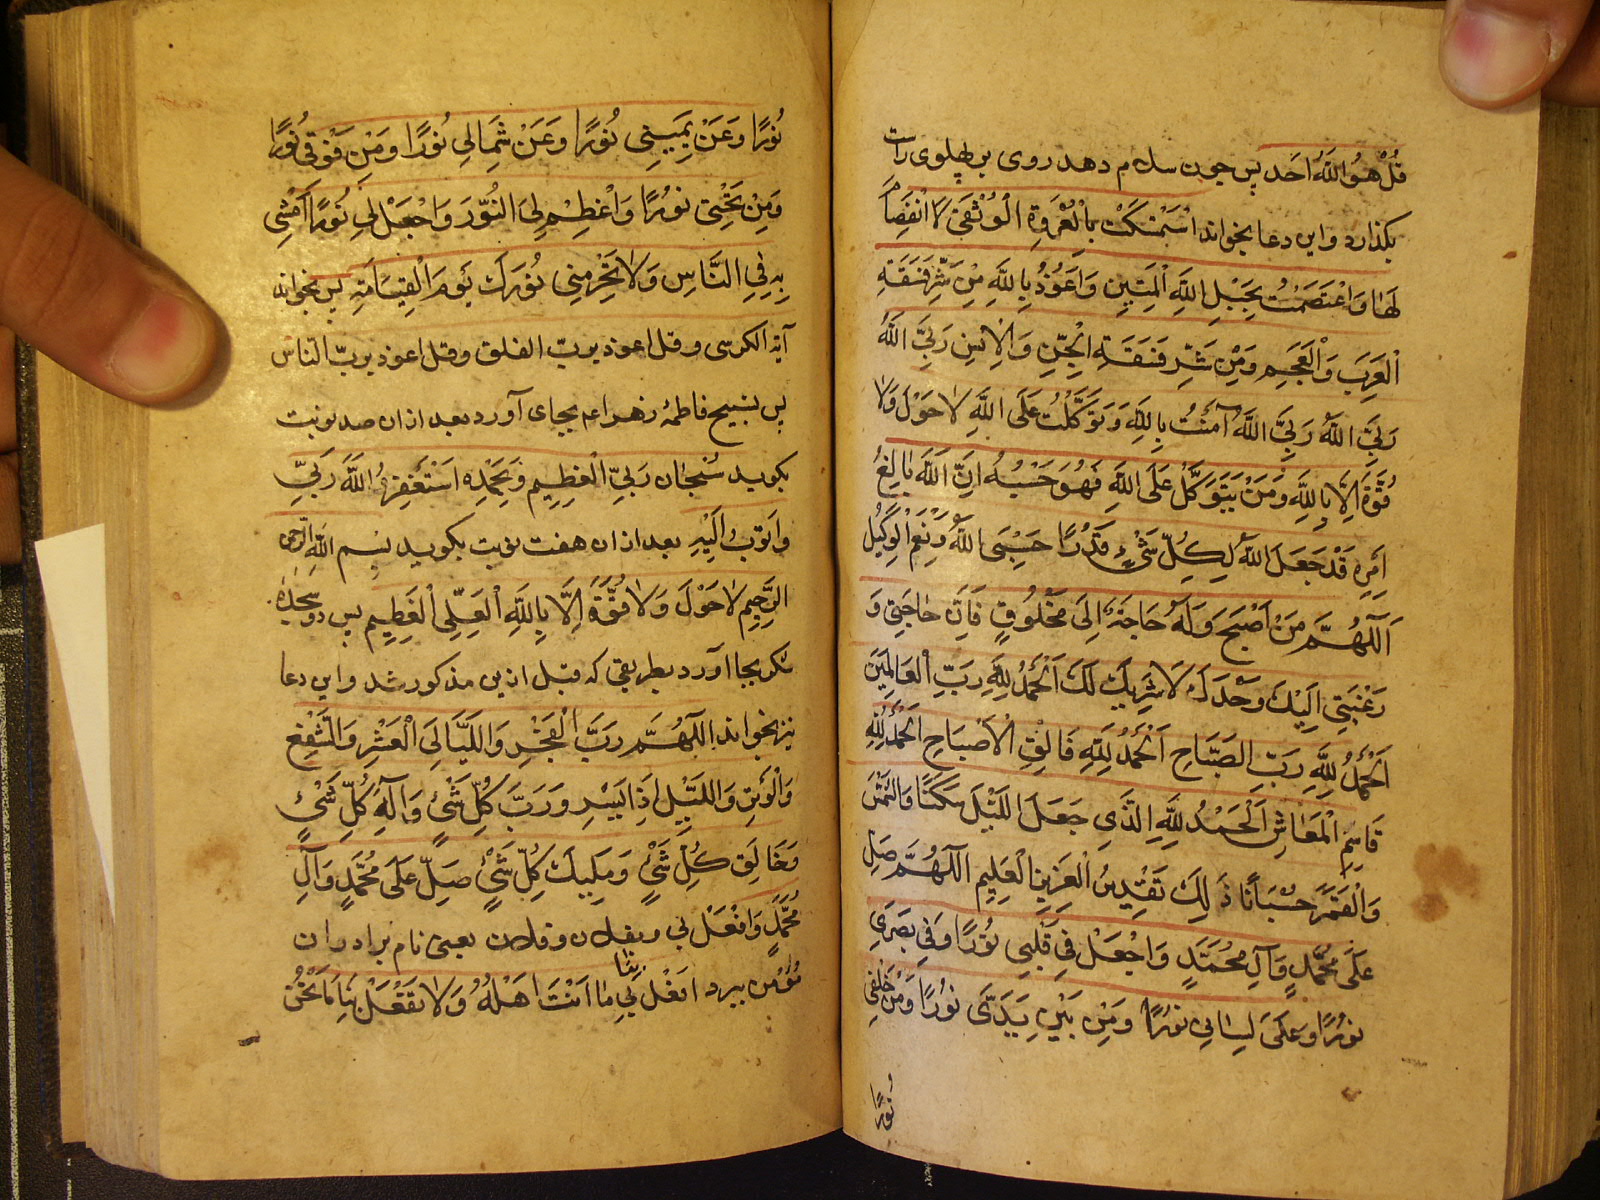 قُلْ هُوَ اللَّهُ اَحَد پس چون سلام دهد روی بر پهلوی راست
بکذارد و این دعا بخواند اسْتَمْسَكْتُ بِالْعُرْوَةِ الْوُثْقَىٰ لَا انْفِصَامَ
لَهَا وَاعْتَصَمْتُ بِحَبْلِ اللَّهِ الْمَتِينِ وَاَعُوذُ بِاللَّهِ مِنْ شَرِّ فَسَقَةِ
الْعَرَبِ وَالْعَجَمِ وَمِنْ شَرِّ فَسَقَةِ الْجِنِّ وَالْاِنْسِ رَبِّيَ اللَّهُ
رَبِّيَ اللَّهُ رَبِّيَ اللَّهُ آمَنْتُ بِاللَّهِ وَتَوَكَّلْتُ عَلَى اللَّهِ لَا حَوْلَ وَلَا
قُوَّةَ اِلَّا بِاللَّهِ وَمَنْ يَتَوَكَّلْ عَلَى اللَّهِ فَهُوَ حَسْبُهُ اِنَّ اللَّهَ بَالِغُ
اَمْرِهِ قَدْ جَعَلَ اللَّهُ لِكُلِّ شَيْءٍ قَدْرًا حَسْبِيَ اللَّهُ وَنِعْمَ الْوَكِيلُ
اَللَّهُمَّ مَنْ اَصْبَحَ وَلَهُ حَاجَةٌ اِلَى مَخْلُوقٍ فَاِنَّ حَاجَتِي وَ
رَغْبَتِي اِلَيْكَ وَحْدَكَ لَا شَرِيكَ لَكَ اَلْحَمْدُ لِلَّهِ رَبِّ الْعَالَمِينَ
اَلْحَمْدُ لِلَّهِ رَبِّ الصَّبَاحِ اَلْحَمْدُ لِلَّهِ فَالِقِ الْاَصْبَاحِ اَلْحَمْدُ لِلَّهِ
قَاسِمِ الْمَعَاشِ اَلْحَمْدُ لِلَّهِ الَّذِي جَعَلَ اللَّيْلَ سَكَنًا وَالشَّمْسَ
وَالْقَمَرَ حُسْبَانًا ذَلِكَ تَقْدِيرُ الْعَزِيزِ الْعَلِيمِ اَللَّهُمَّ صَلِّ
عَلَى مُحَمَّدٍ وَآلِ مُحَمَّدٍ وَاجْعَلْ فِي قَلْبِي نُورًا وَفِي بَصَرِي
نُورًا وَعَلَى لِسَانِي نُورًا وَمِنْ بَيْنِ يَدَيَّ نُورًا وَمِنْ خَلْفِي
نُورًا
نُورًا وَعَنْ يَمِينِي نُورًا وَعَنْ شِمَالِي نُورًا وَمِنْ فَوْقِي نُورًا
وَمِنْ تَحْتِي نُورًا وَاَعْظِمْ لِيَ النُّورَ وَاجْعَلْ لِي نُورًا اَمْشِي
بِهِ فِي النَّاسِ وَلَا تَحْرِمْنِي نُورَكَ يَوْمَ الْقِيَامَةِ پس بخواند
آیة الکرسی و قل اعوذ برب الفلق و قل اعوذ بربّ الناس
پس تسبیح فاطمهٔ زهرا عم بجای آورد بعد از ان صد نوبت
بکوید سُبْحَانَ رَبِّيَ الْعَظِيمِ وَبِحَمْدِهِ اَسْتَغْفِرُ اللَّهَ رَبِّي
وَاَتُوبُ اِلَيْهِ بعد از ان هفت نوبت بکوید بِسْمِ اللَّهِ الرَّحْمَنِ
الرَّحِيمِ لَا حَوْلَ وَلَا قُوَّةَ اِلَّا بِاللَّهِ الْعَلِيِّ الْعَظِيمِ پس دو سجدهٔ
شکر بجا آورد بطریقی که قبل ازین مذکور شد و این دعا
نیز بخواند اَللَّهُمَّ رَبَّ الْفَجْرِ وَاللَّيَالِي الْعَشْرِ وَالشَّفْعِ
وَالْوَتْرِ وَاللَّيْلِ اِذَا يَسْرِ وَرَبَّ كُلِّ شَيْءٍ وَاِلَهَ كُلِّ شَيْءٍ
وَخَالِقَ كُلِّ شَيْءٍ وَمَلِيكَ كُلِّ شَيْءٍ صَلِّ عَلَى مُحَمَّدٍ وَآلِ
مُحَمَّدٍ وَافْعَلْ بِي وبفلان وفلان یعنی نام برادران
مؤمن ببرد افعل بِنَا بِي مَا اَنْتَ اَهْلُهُ وَلَا تَفْعَلْ بِنَا مَا نَحْنُ